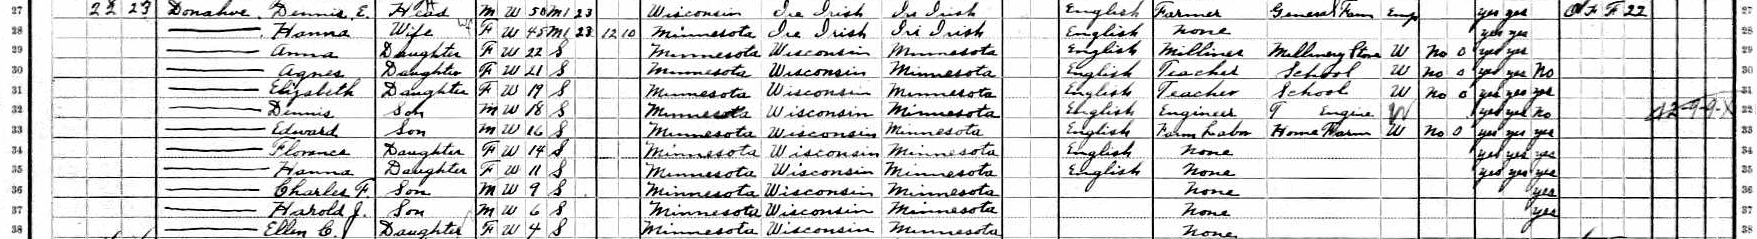 27 22 23 Donahue, Dennis E. Head M W 50 M1 23 Wisconsin Ire Irish Ire Irish English Farmer General Farm Emp yes yes O F F 22 27
28 Hanna Wife F W 45 M1 23 12 10 Minnesota Ire Irish Ire Irish English None yes yes 28
29 Anna Daughter F W 22 S Minnesota Wisconsin Minnesota English Milliner Millinery Store W No 0 yes yes 29
30 Agnes Daughter F W 21 S Minnesota Wisconsin Minnesota English Teacher School W No 0 yes yes No 30
31 Elizabeth Daughter F W 19 S Minnesota Wisconsin Minnesota English Teacher School W No 0 yes yes yes 31
32 Dennis Son M W 18 S Minnesota Wisconsin Minnesota English Engineer Engine W yes yes no 32
33 Edward Son M W 16 S Minnesota Wisconsin Minnesota English Farm Labor Home Farm W No 0 yes yes yes 33
34 Florence Daughter F W 14 S Minnesota Wisconsin Minnesota English None yes yes yes 34
35 Hanna Daughter F W 11 S Minnesota Wisconsin Minnesota English None yes yes yes 35
36 Charles F. Son M W 9 S Minnesota Wisconsin Minnesota None yes 36
37 Harold J. Son M W 6 S Minnesota Wisconsin Minnesota None yes 37
38 Ellen C. Daughter F W 4 S Minnesota Wisconsin Minnesota None 38